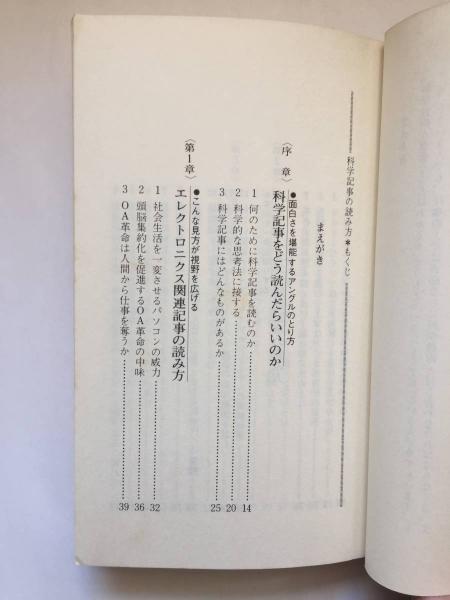 科学記事の読み方＊もくじ
まえがき
〈序 章〉
●面白さを堪能するアングルのとり方
科学記事をどう読んだらいいのか
1 何のために科学記事を読むのか…………14
2 科学的な思考法に接する…………20
3 科学記事にはどんなものがあるか…………25
〈第1章〉
●こんな見方が視野を広げる
エレクトロニクス関連記事の読み方
1 社会生活を一変させるパソコンの威力…………32
2 頭脳集約化を促進するOA革命の中味…………36
3 OA革命は人間から仕事を奪うか…………39